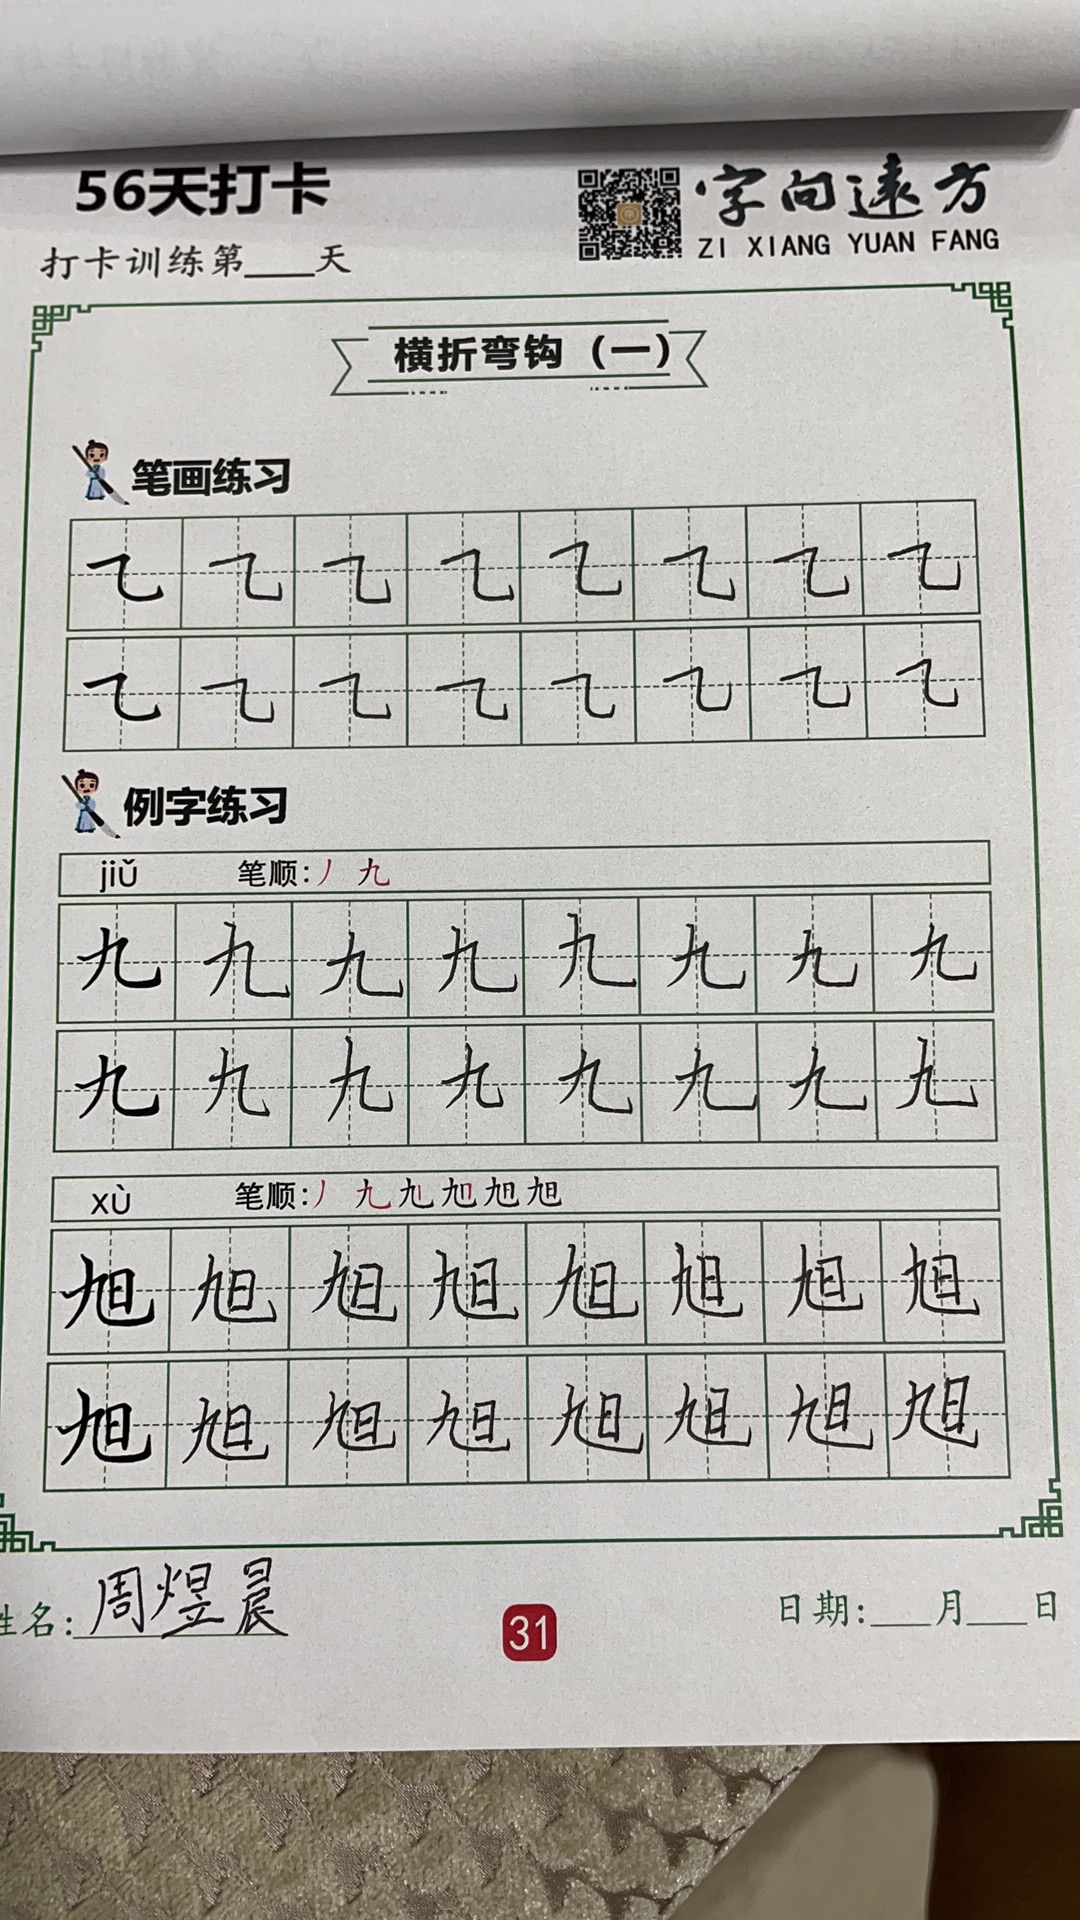 56天打卡
字向远方
ZI XIANG YUAN FANG
打卡训练第____天
横折弯钩（一）
笔画练习
㇈㇈㇈㇈㇈㇈㇈㇈
㇈㇈㇈㇈㇈㇈㇈㇈
例字练习
jiǔ 笔顺：丿 九
九九九九九九九九
九九九九九九九九
xù 笔顺：丿 九 旭 旭 旭 旭
旭旭旭旭旭旭旭旭
旭旭旭旭旭旭旭旭
姓名：周煜晨
31
日期：___月___日